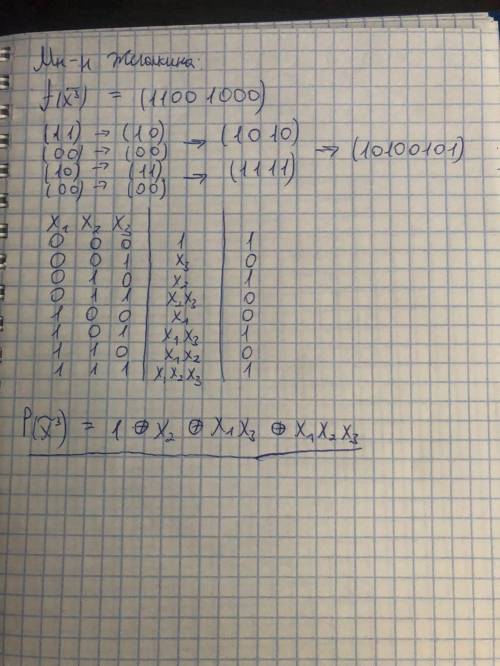 Мн-н Жегалкина:
f(x̃³) = (1100 1000)
(11) → (10) → (1010) → (10100101)
(00) → (00)
(10) → (11) → (1111)
(00) → (00)
X₁ X₂ X₃
0 0 0 | 1 | 1
0 0 1 | X₃ | 0
0 1 0 | X₂ | 1
0 1 1 | X₂X₃ | 0
1 0 0 | X₁ | 0
1 0 1 | X₁X₃ | 1
1 1 0 | X₁X₂ | 0
1 1 1 | X₁X₂X₃ | 1
P(x̃³) = 1 ⊕ X₂ ⊕ X₁X₃ ⊕ X₁X₂X₃